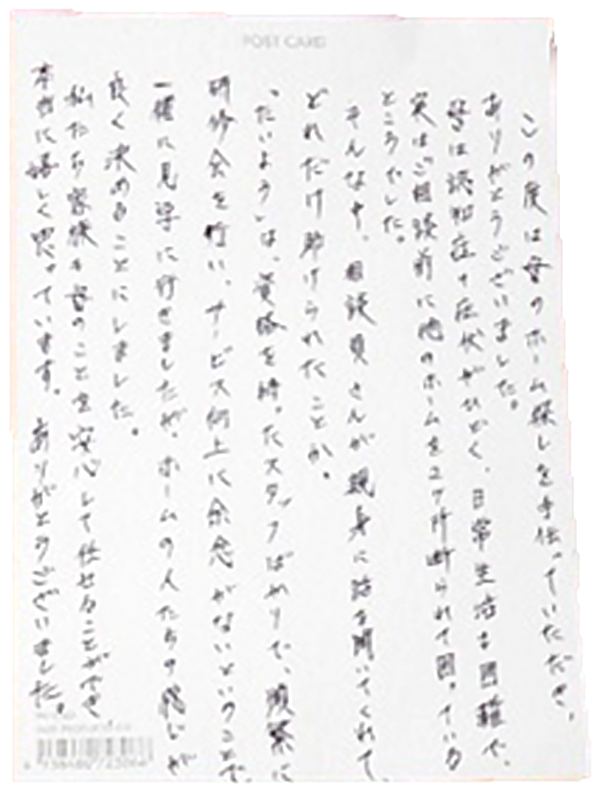 POST CARD
この度は母のホーム探しを手伝っていただき、
ありがとうございました。
母は認知症の症状がひどく、日常生活も困難で、
実はご相談前に他のホームを2ヶ所断られて困っている
ところでした。
そんな中、相談員さんが親身に話を聞いてくれて、
どれだけ助けられたことか。
「たいよう」は、資格を持ったスタッフばかりで、頻繁に
研修会を行い、サービス向上に余念がないということで、
一緒に見学に行きましたが、ホームの人たちの感じが
良く決めることにしました。
私たち家族も母のことを安心して任せることができ
本当に嬉しく思っています。ありがとうございました。